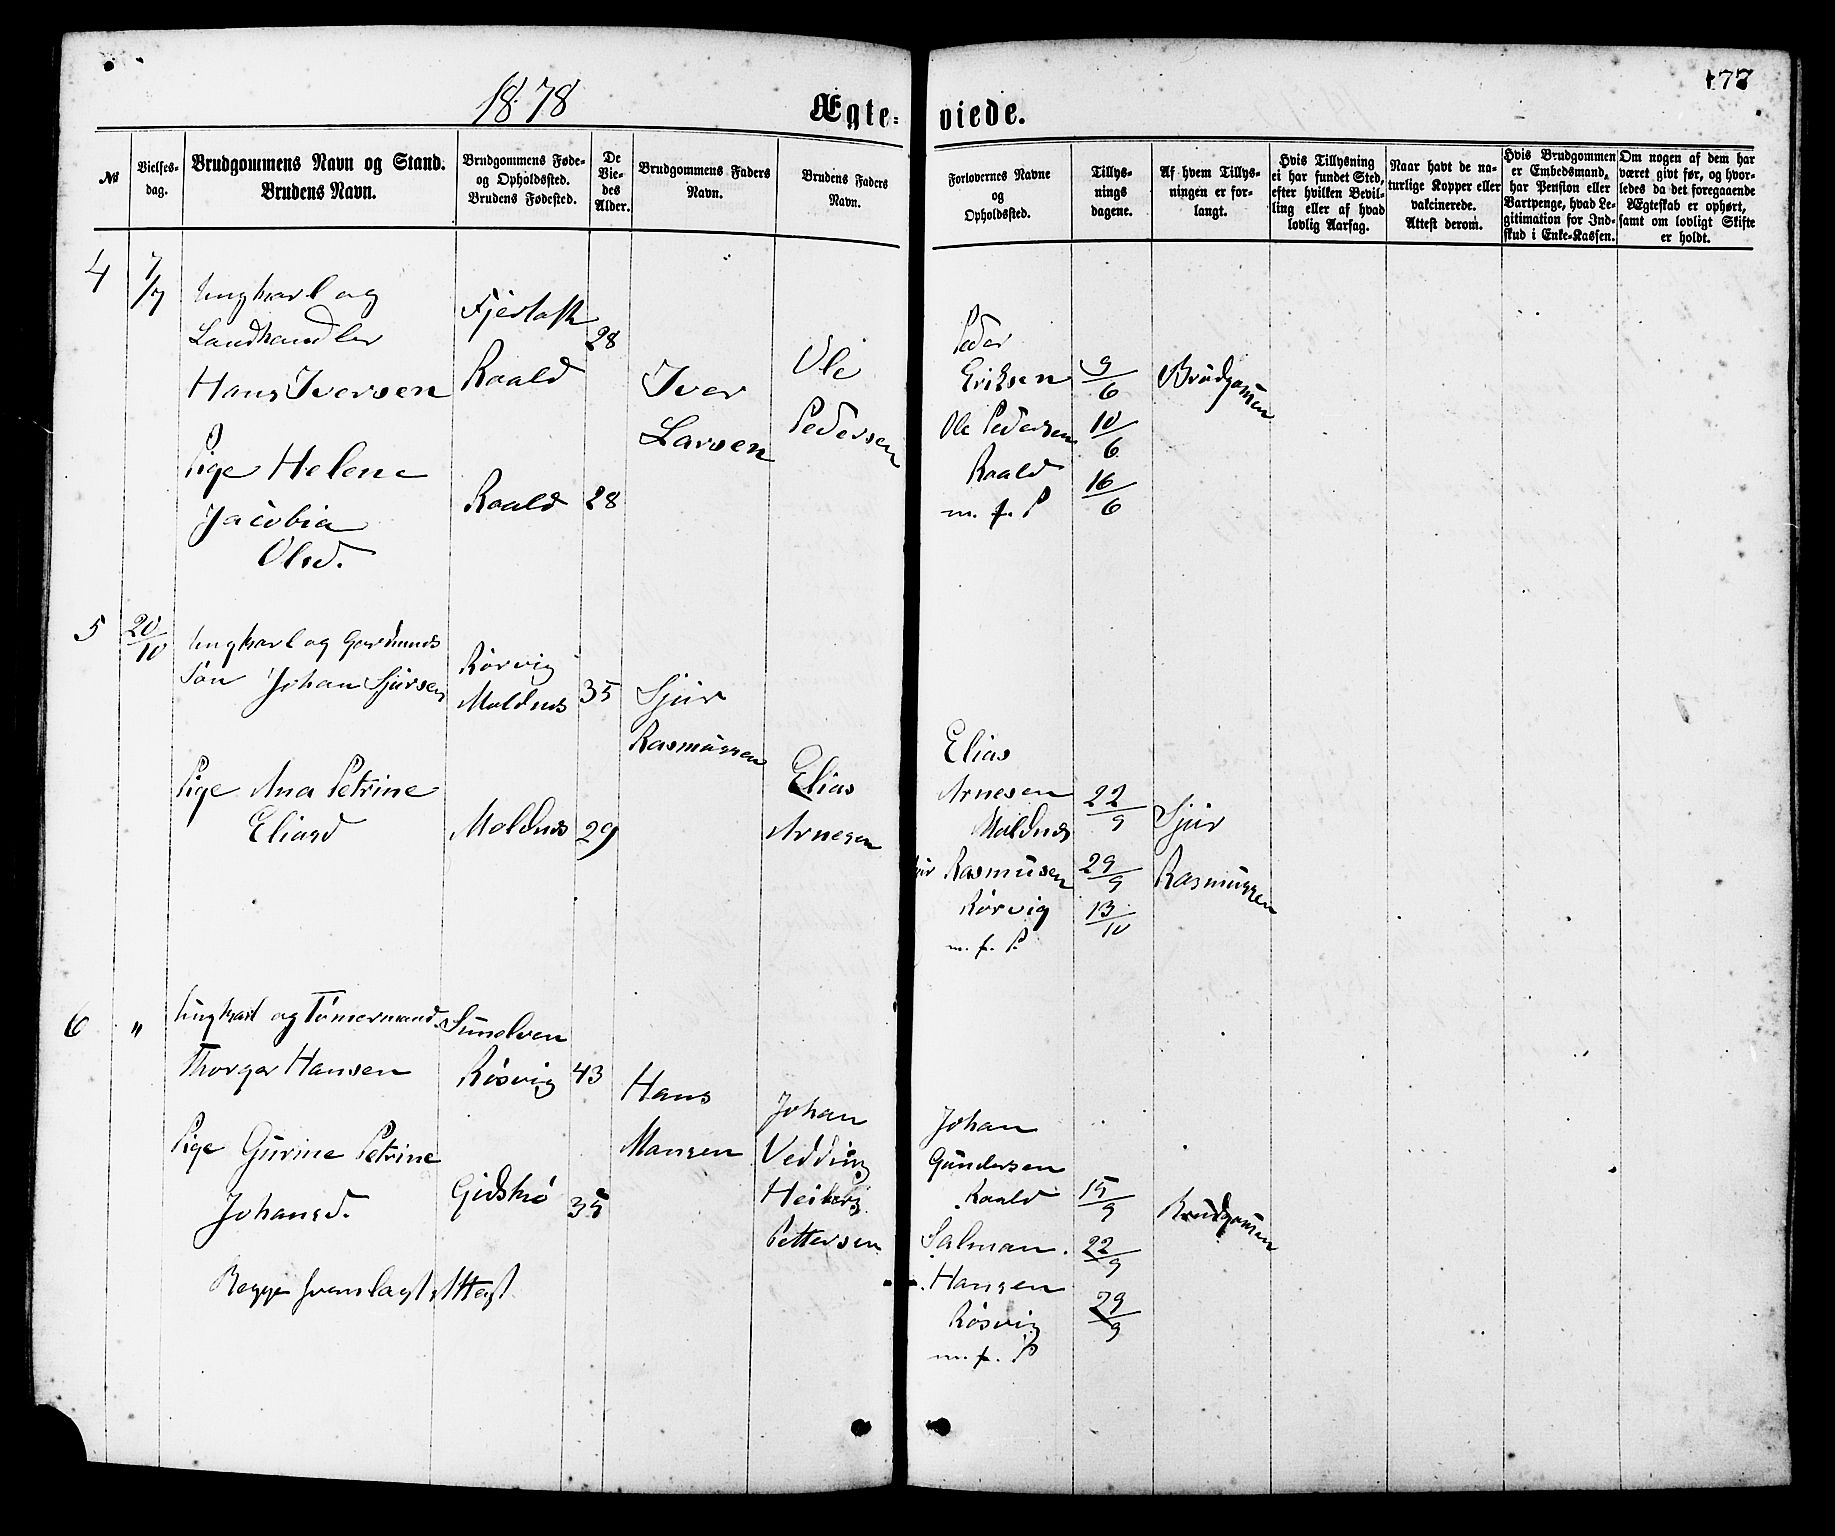 1878
Ægte-
viede.
177
№
Vielses-
dag.
Brudgommens Navn og Stand.
Brudens Navn.
Brudgommens Føde-
og Opholdssted.
Brudens Fødested.
De
Vie-
des
Alder.
Brudgommens Faders
Navn.
Brudens Faders
Navn.
Forlovernes Navne
og
Opholdssted.
Tillys-
nings
dagene.
Af hvem Tillys-
ningen er for-
langt.
Hvis Tillysning
ei har fundet Sted,
efter hvilken Bevil-
ling eller af hvad
lovlig Aarsag.
Naar havt de na-
turlige Kopper eller
vakcinerede.
Attest derom.
Hvis Brudgommen
er Embedsmand,
har Pension eller
Vartpenge, hvad Le-
gitimation for Ind-
skud i Enke-Kassen.
Om nogen af dem har
været givt før, og hvor-
ledes da det foregaaende
Ægteskab er ophørt,
samt om lovligt Skifte
er holdt.
4
7/7
Ungkarl og
Landhandler
Hans Iversen
Fjertoft
Roald
28
Iver
Larsen
Ole
Pedersen
Peder
Eriksen
Ole Pedersen
Roald
m. f. P
9/6
10/6
16/6
Brudgomen
Pige Helene
Jacobia
Olsd.
Roald
28
5
20/10
Ungkarl og Gardmands
Søn Johan Sjursen
Rørvig
Moldnes
35
Sjur
Rasmussen
Elias
Arnesen
Elias
Arnesen
Moldnes
Rasmusen
Rørvig
m. f. P.
22/9
29/9
13/10
Sjur
Rasmussen
Pige Ana Petrine
Eliasd
Moldnes
29
6
"
Ungkarl og Tømermand
Thorger Hansen
Sunelven
Røsvig
43
Hans
Mansen
Johan
Vedding
Heiberg
Pettersen
Johan
Gundersen
Roald
Salman
Hansen
Røsvig
m. f. P
15/9
22/9
29/9
Brudgomen
Pige Gurine Petrine
Johansd.
Gidskø
35
Begge fremlagt Attest